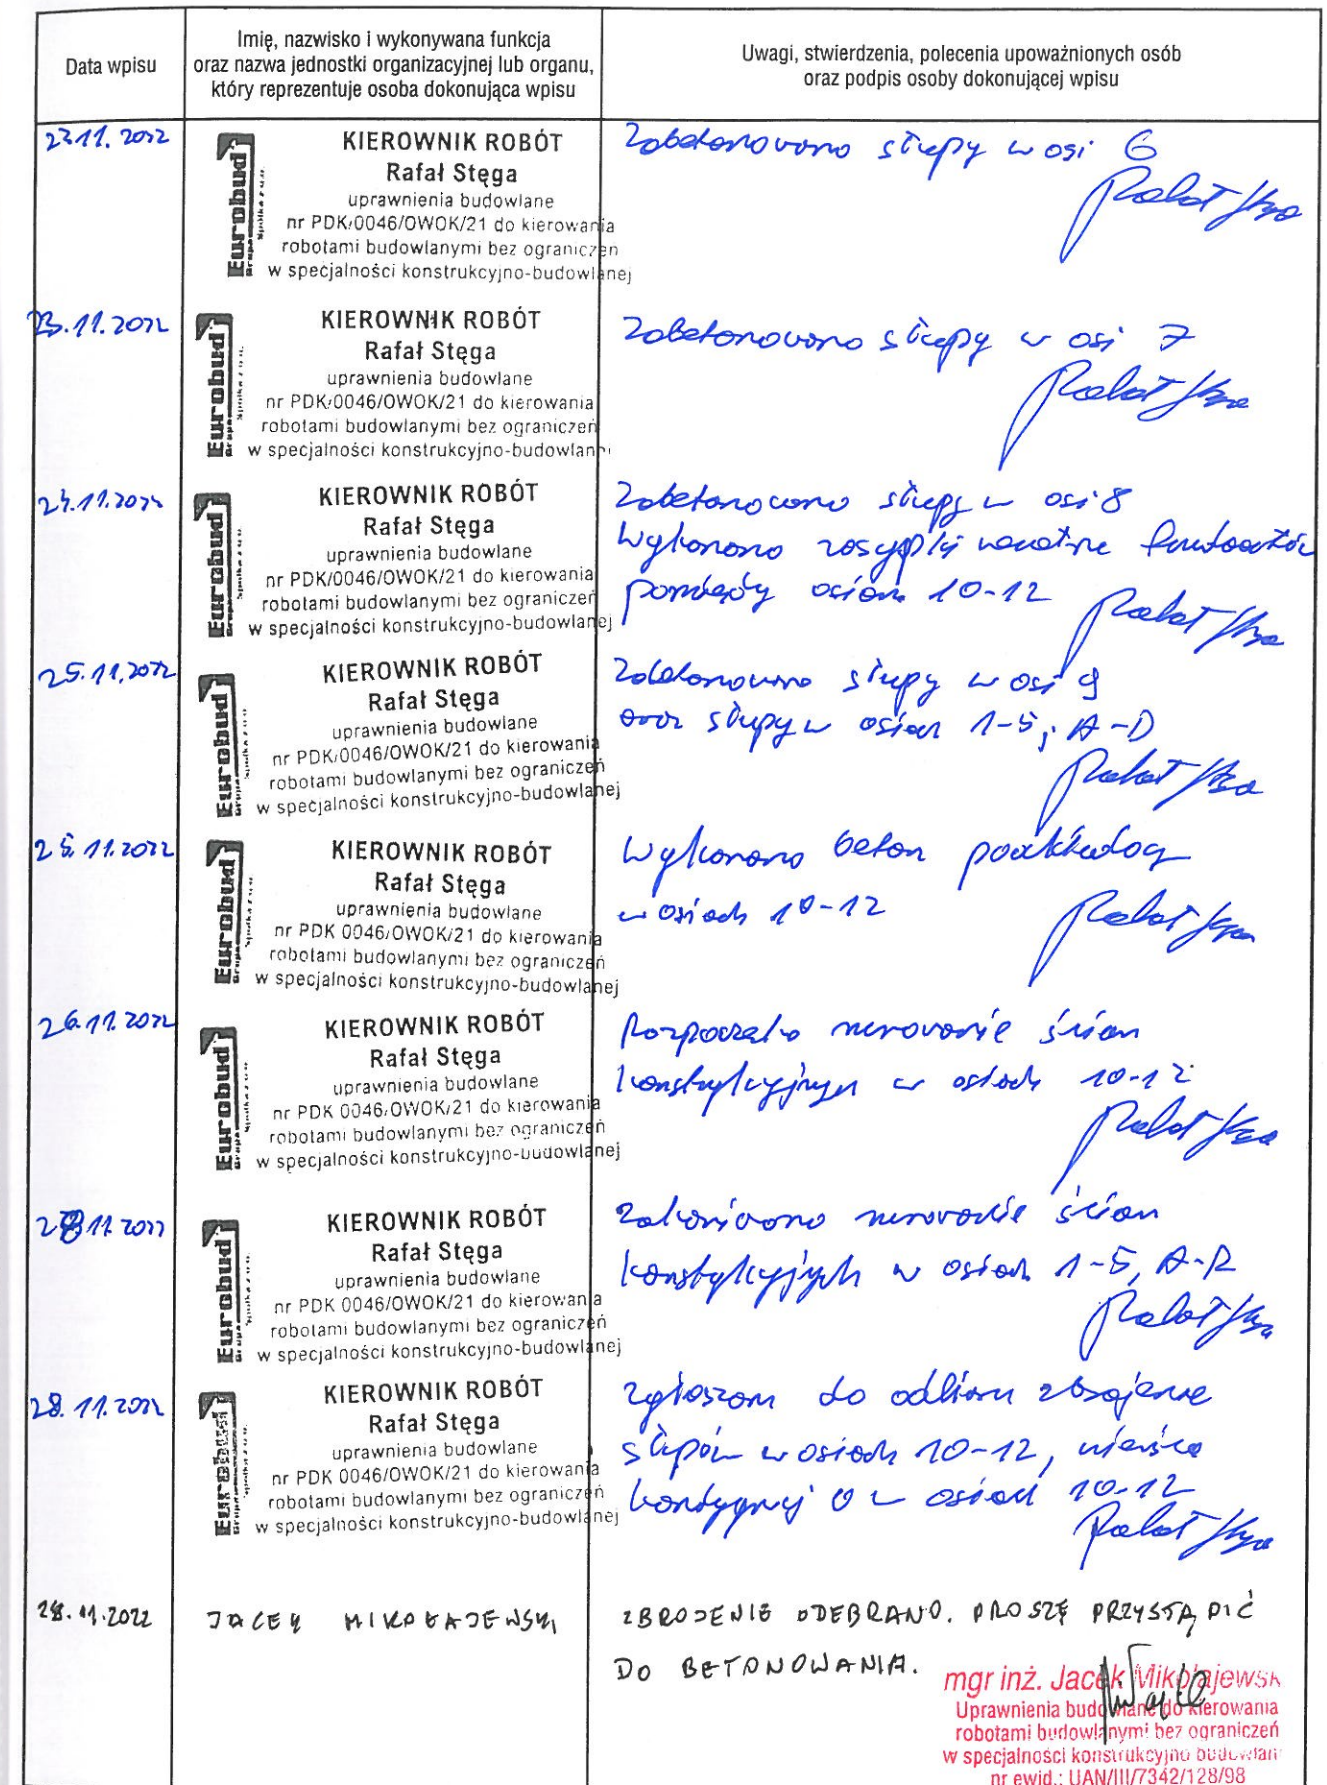 Data wpisu
Imię, nazwisko i wykonywana funkcja
oraz nazwa jednostki organizacyjnej lub organu,
który reprezentuje osoba dokonująca wpisu
Uwagi, stwierdzenia, polecenia upoważnionych osób
oraz podpis osoby dokonującej wpisu
11. 2022
Eurobud
KIEROWNIK ROBÓT
Rafał Stęga
uprawnienia budowlane
nr PDK/0046/OWOK/21 do kierowania
robotami budowlanymi bez ograniczeń
w specjalności konstrukcyjno-budowlanej
Zabetonowano słupy w osi 6
23.11.2022
Eurobud
KIEROWNIK ROBÓT
Rafał Stęga
uprawnienia budowlane
nr PDK/0046/OWOK/21 do kierowania
robotami budowlanymi bez ograniczeń
w specjalności konstrukcyjno-budowlan
Zabetonowano słupy w osi 7
24.11.2022
Eurobud
KIEROWNIK ROBÓT
Rafał Stęga
uprawnienia budowlane
nr PDK/0046/OWOK/21 do kierowania
robotami budowlanymi bez ograniczeń
w specjalności konstrukcyjno-budowlanej
Zabetonowano słupy w osi 8
Wykonano zasypki fundamentów
pomiędzy osiami 10-12
25.11.2022
Eurobud
KIEROWNIK ROBÓT
Rafał Stęga
uprawnienia budowlane
nr PDK/0046/OWOK/21 do kierowania
robotami budowlanymi bez ograniczeń
w specjalności konstrukcyjno-budowlanej
Zabetonowano słupy w osi 9
oraz słupy w osiach 1-5; A-D
25.11.2022
Eurobud
KIEROWNIK ROBÓT
Rafał Stęga
uprawnienia budowlane
nr PDK 0046/OWOK/21 do kierowania
robotami budowlanymi bez ograniczeń
w specjalności konstrukcyjno-budowlanej
Wykonano beton podkładowy
w osiach 10-12
26.11.2022
Eurobud
KIEROWNIK ROBÓT
Rafał Stęga
uprawnienia budowlane
nr PDK 0046/OWOK/21 do kierowania
robotami budowlanymi bez ograniczeń
w specjalności konstrukcyjno-budowlanej
Rozpoczęto murowanie ścian
konstrukcyjnych w osiach 10-12
11.2022
Eurobud
KIEROWNIK ROBÓT
Rafał Stęga
uprawnienia budowlane
nr PDK 0046/OWOK/21 do kierowania
robotami budowlanymi bez ograniczeń
w specjalności konstrukcyjno-budowlanej
Zakończono murowanie ścian
konstrukcyjnych w osiach 1-5,
28.11.2022
Eurobud
KIEROWNIK ROBÓT
Rafał Stęga
uprawnienia budowlane
nr PDK 0046/OWOK/21 do kierowania
robotami budowlanymi bez ograniczeń
w specjalności konstrukcyjno-budowlanej
Zgłaszam do odbioru zbrojenie
słupów w osiach 10-12, wieńce
kondygnacji 0 w osiach 10-12
28.11.2022
JACEK MIKOŁAJEWSKI
ZBROJENIE ODEBRANO. PROSZĘ PRZYSTĄPIĆ
DO BETONOWANIA.
mgr inż. Jacek Mikołajewsk
Uprawnienia budowlane do kierowania
robotami budowlanymi bez ograniczeń
w specjalności konstrukcyjno budowlan
nr ewid.: UAN/III/7342/128/98